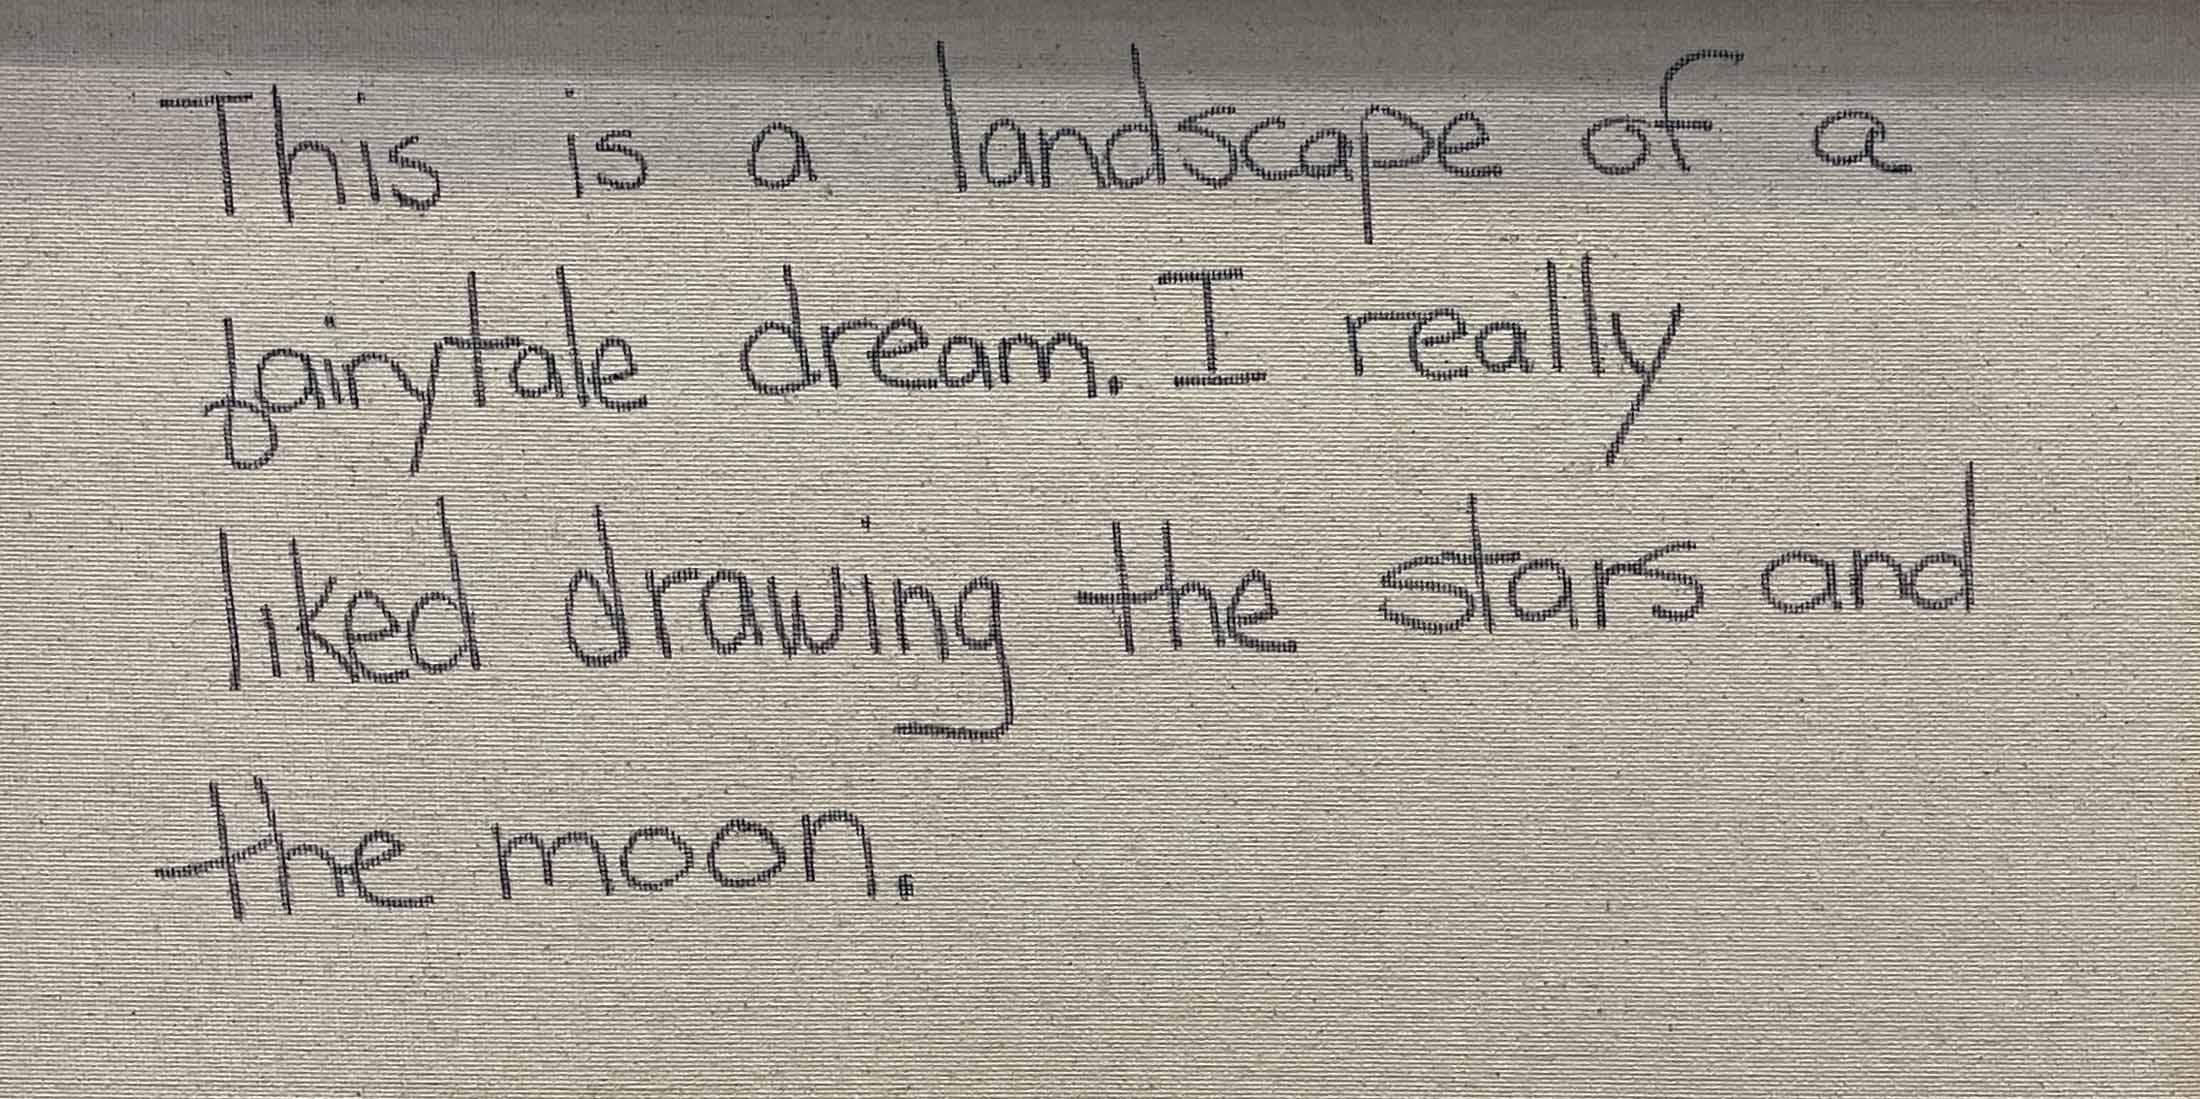 This is a landscape of a
fairytale dream. I really
liked drawing the stars and
the moon.